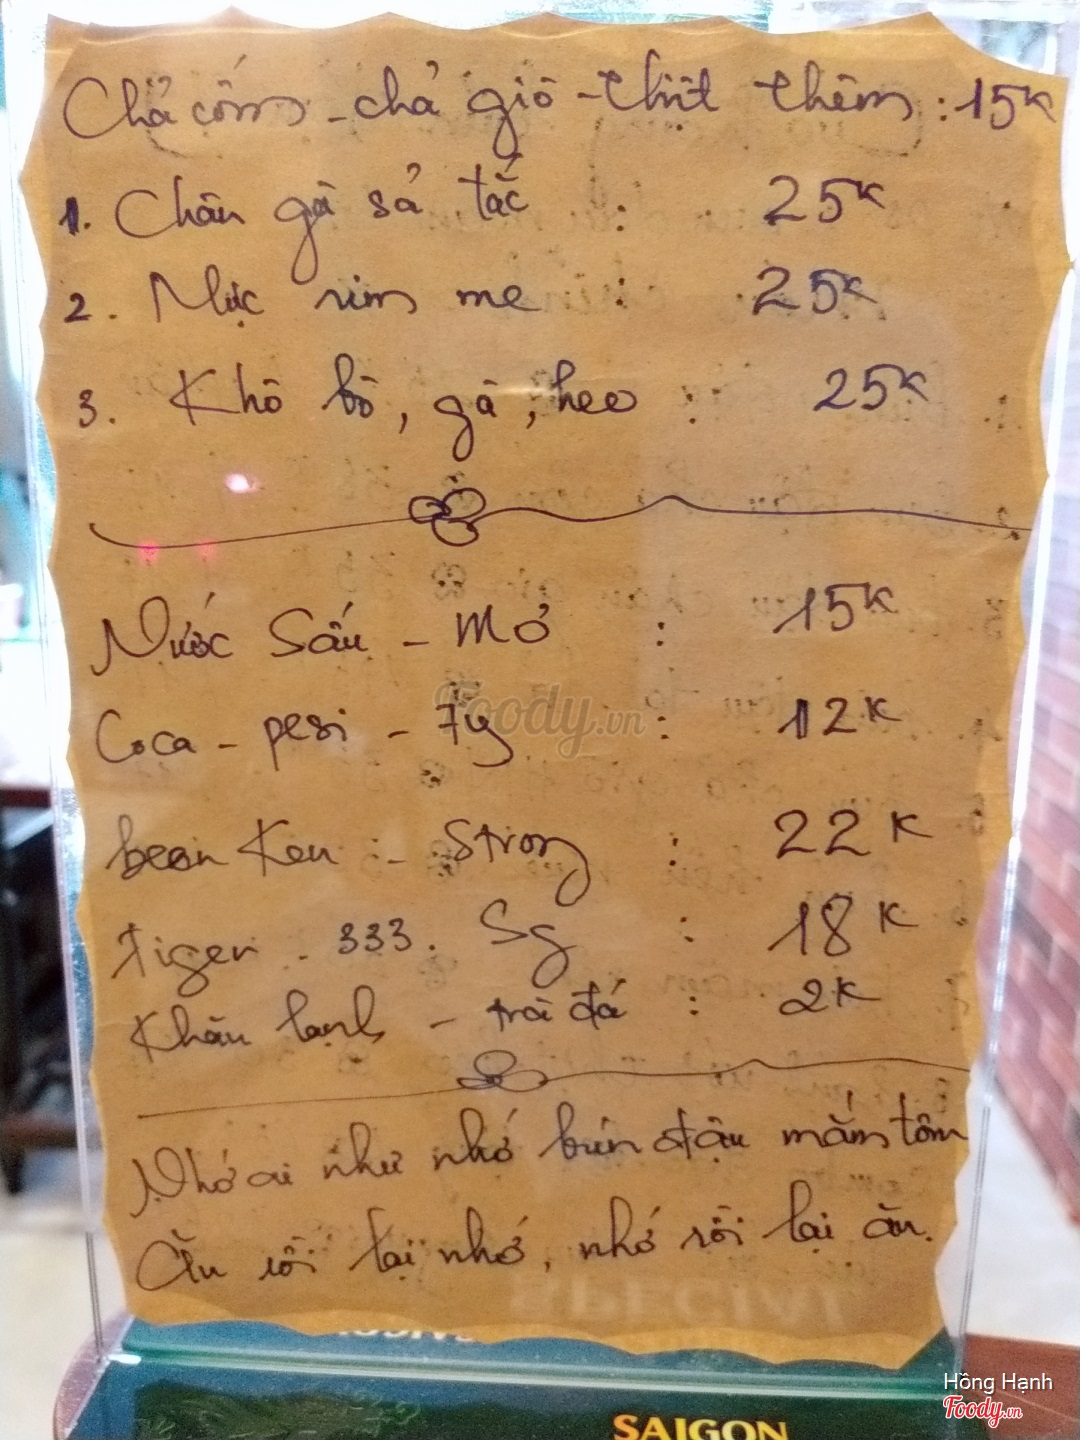 Chả cốm - chả giò - thịt thêm : 15K
1. Chân gà sả tắc : 25K
2. Mực rim me : 25K
3. Khô bò, gà, heo : 25K
Nước Sấu - Mơ : 15K
Coca - pesi - 7up : 12K
Foody.vn
beer Ken - Strong : 22K
Tiger - 333. Sg : 18K
Khăn lạnh - trà đá : 2K
Nhớ ai như nhớ bún đậu mắm tôm
Ăn rồi lại nhớ, nhớ rồi lại ăn.
Hồng Hạnh
Foody.vn
SAIGON